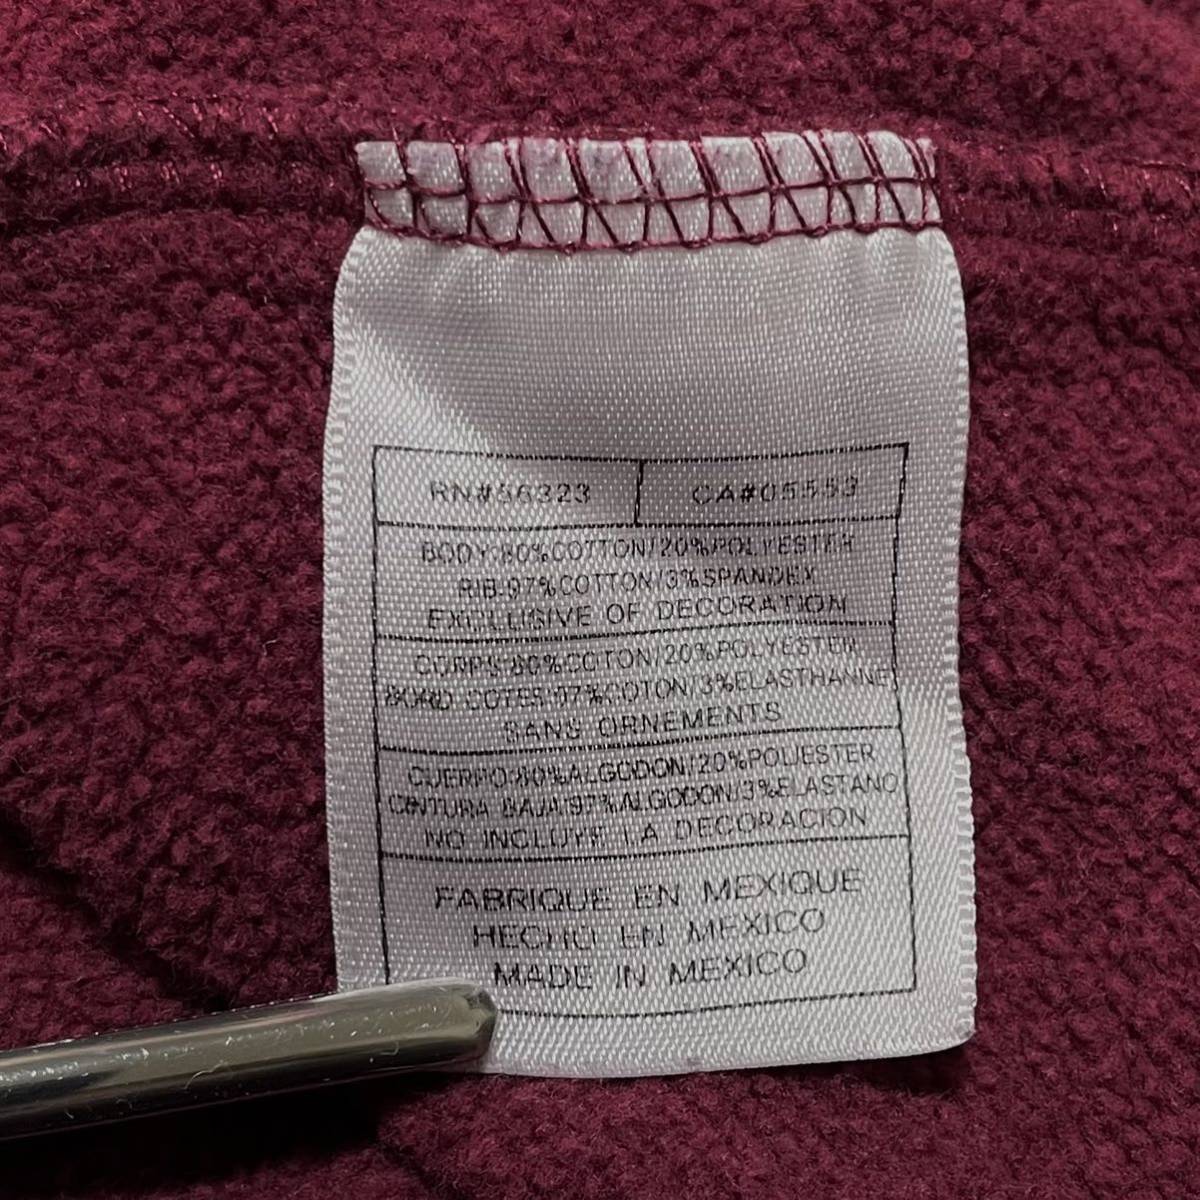 RN#56323 CA#05553
BODY:80%COTTON/20%POLYESTER
RIB:97%COTTON/3%SPANDEX
EXCLUSIVE OF DECORATION
CORPS:80%COTON/20%POLYESTER
BORD COTES:97%COTON/3%ELASTHANNE
SANS ORNEMENTS
CUERPO:80%ALGODON/20%POLIESTER
CINTURA BAJA:97%ALGODON/3%ELASTANO
NO INCLUYE LA DECORACION
FABRIQUE EN MEXIQUE
HECHO EN MEXICO
MADE IN MEXICO